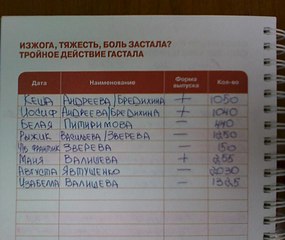 ИЗЖОГА, ТЯЖЕСТЬ, БОЛЬ ЗАСТАЛА?
ТРОЙНОЕ ДЕЙСТВИЕ ГАСТАЛА
Дата Наименование Форма выпуска Кол-во
КЕША АНДРЕЕВА/БРЕДИХИНА + 1050
ИОСИФ АНДРЕЕВА/БРЕДИХИНА + 1040
БЕЛАЯ ПИТИРИМОВА — 440
РЫЖИК ВАСИЛЬЕВА/ЗВЕРЕВА — 1250
ЗВЕРЕВА — 150
МАНЯ ВАЛИЩЕВА + 255
АВГУСТА ЯВТУШЕНКО — 2030
ИЗАБЕЛЛА ВАЛИЩЕВА — 1325